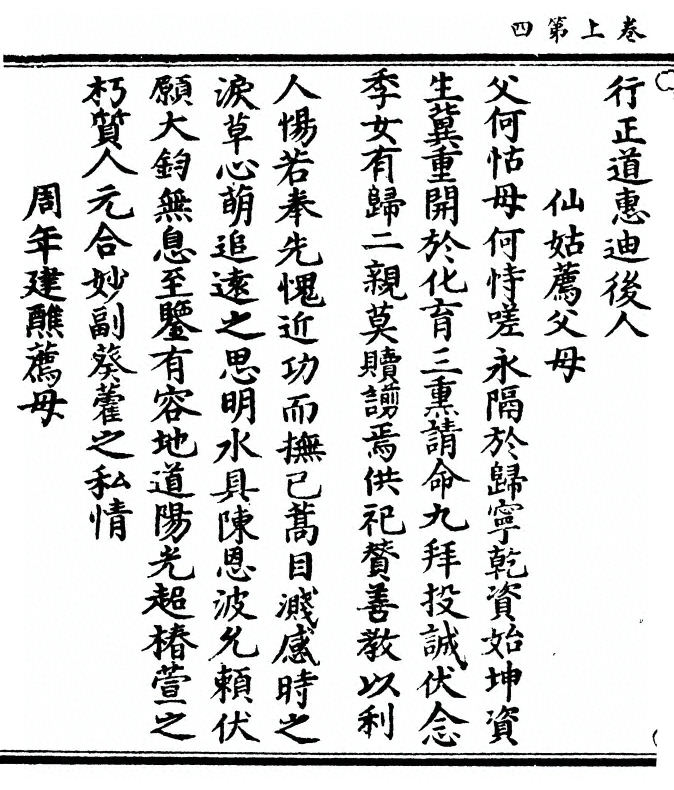 卷上第四
行正道惠迪後人
仙姑薦父母
父何怙母何恃嗟永隔於歸寧乾資始坤資
生冀重開於化育三熏請命九拜投誠伏念
季女有歸二親莫贖謭焉供祀贊善教以利
人惕若奉先愧近功而撫已蒿目濺感時之
淚草心萌追遠之思明水具陳恩波允賴伏
願大鈞無息至鑒有容地道陽光超椿萱之
朽質人元合妙副葵藿之私情
周年建醮薦母